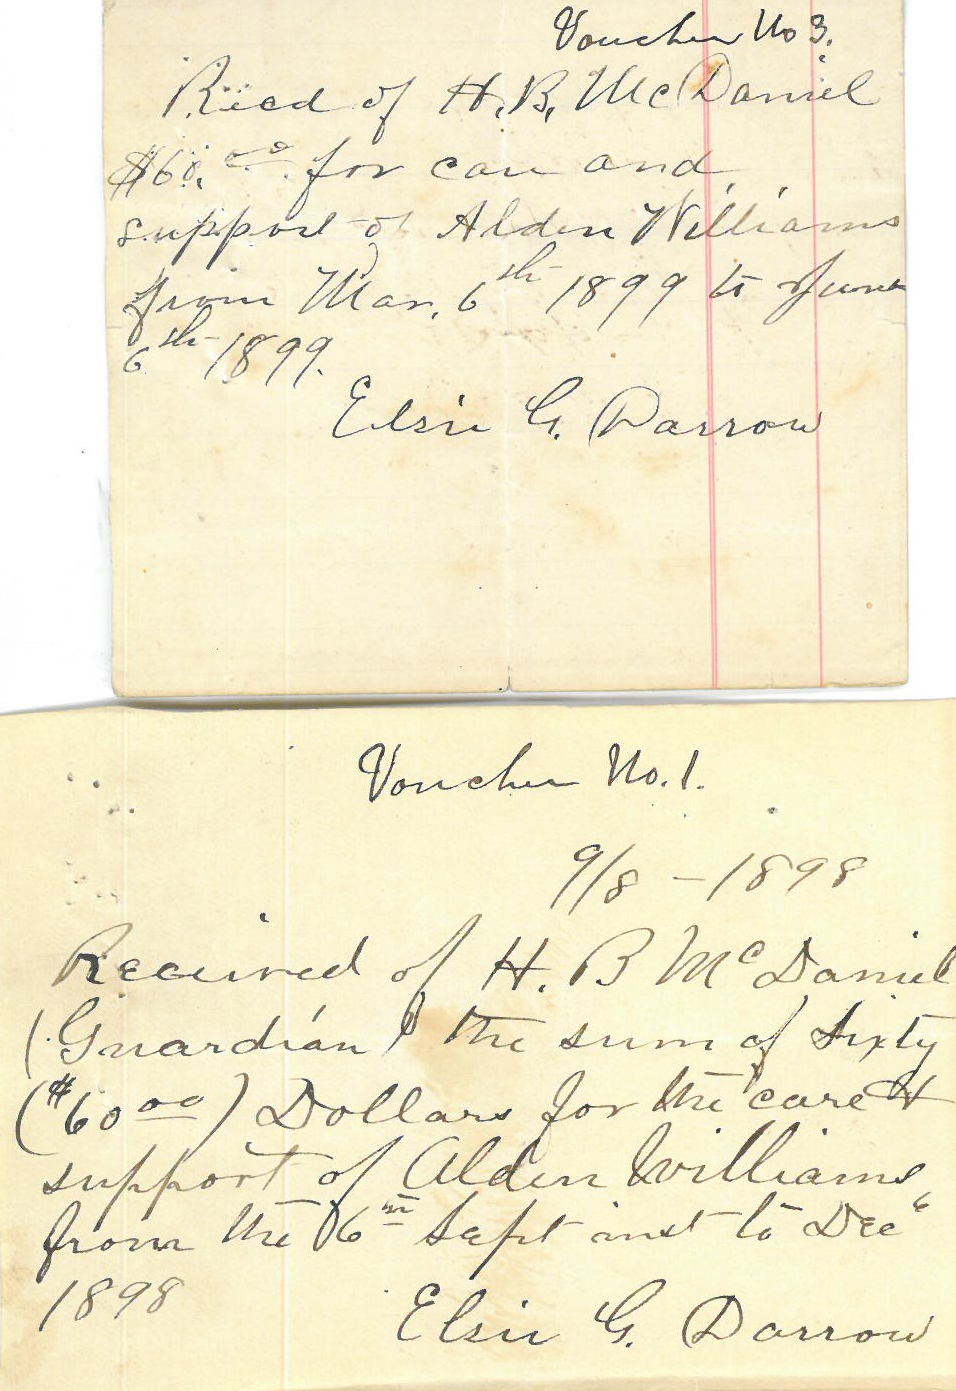 Voucher No 3.
Recd of H. B. McDaniel
$60.00 for care and
support of Alden Williams
from Mar. 6th 1899 to June
6th 1899.
Elsie G. Darrow
Voucher No. 1.
9/8 - 1898
Received of H. B McDaniel
(Guardian) the sum of Sixty
($60 00) Dollars for the care &
support of Alden Williams
from the 6th Sept inst to Dec 6
1898
Elsie G. Darrow